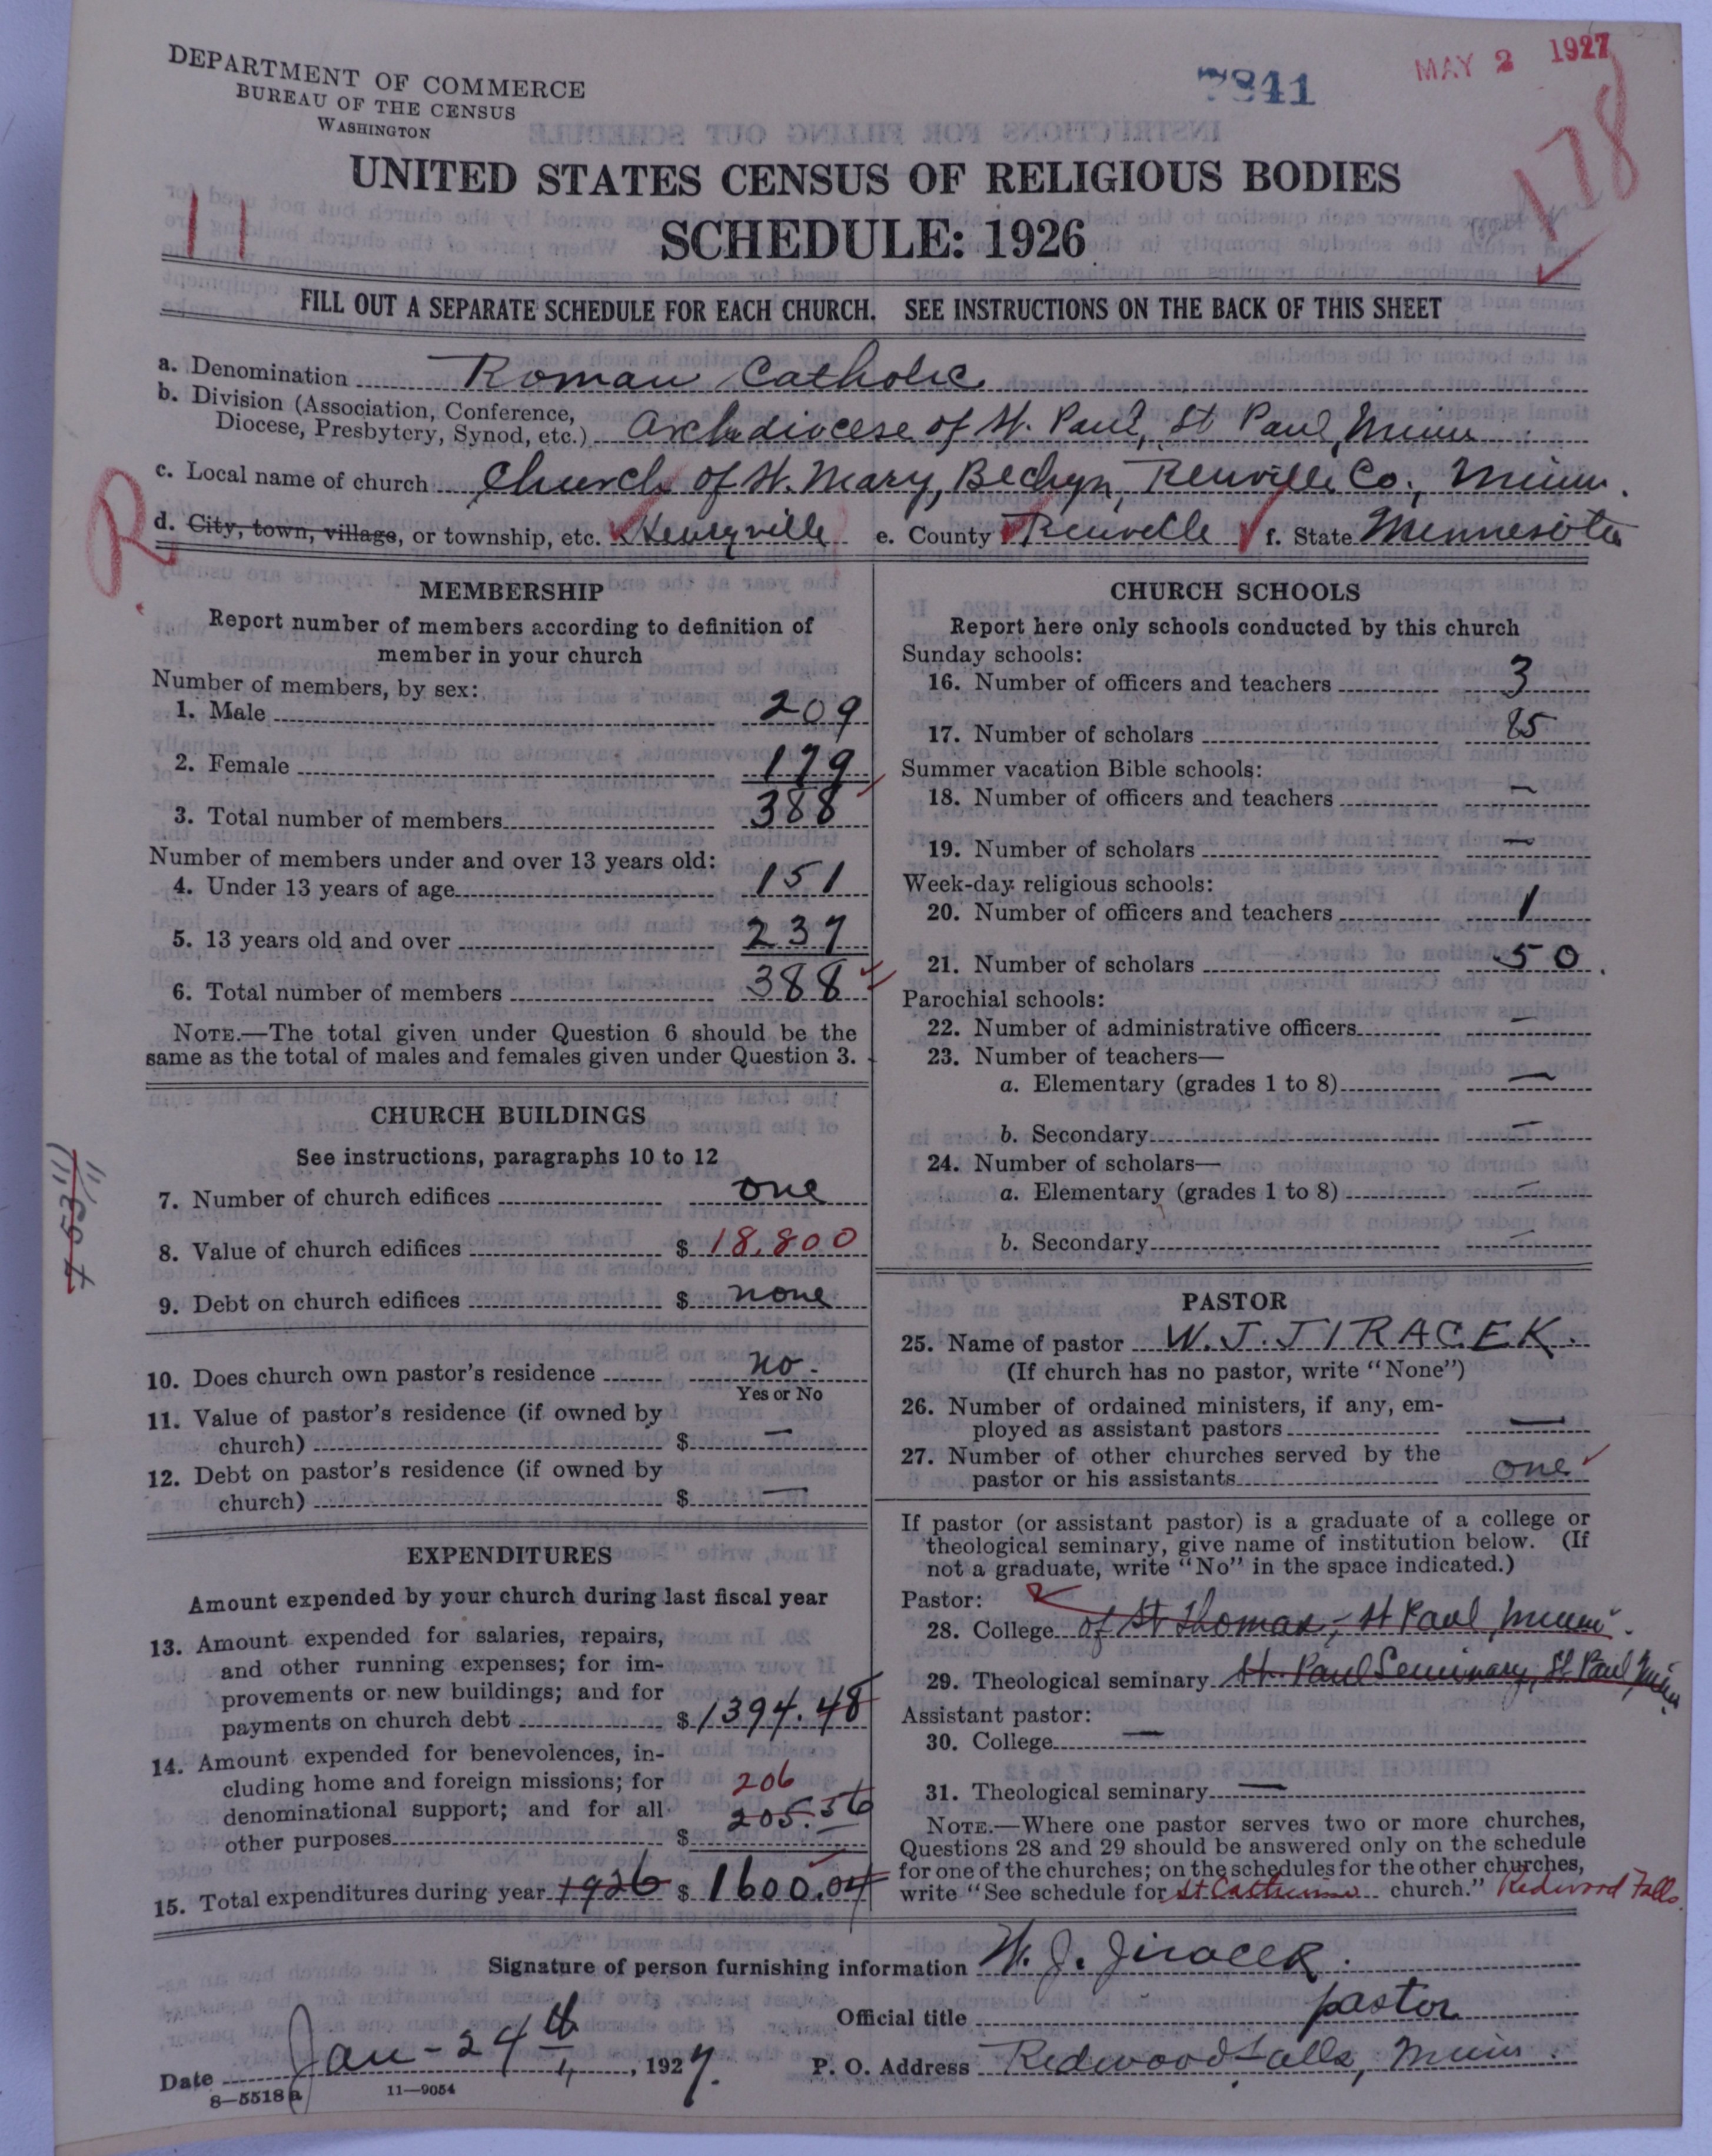 DEPARTMENT OF COMMERCE
BUREAU OF THE CENSUS
WASHINGTON
7841
MAY 2 1927
178
UNITED STATES CENSUS OF RELIGIOUS BODIES
11
SCHEDULE: 1926
FILL OUT A SEPARATE SCHEDULE FOR EACH CHURCH. SEE INSTRUCTIONS ON THE BACK OF THIS SHEET
a. Denomination Roman Catholic
b. Division (Association, Conference,
Diocese, Presbytery, Synod, etc.) Archdiocese of St. Paul, St Paul, Minn
c. Local name of church Church of St. Mary, Bechyn, Renville Co., Minn.
R.
d. City, town, village, or township, etc. Henryville e. County Renville f. State Minnesota
MEMBERSHIP
Report number of members according to definition of
member in your church
Number of members, by sex:
1. Male 209
2. Female 179
3. Total number of members 388
Number of members under and over 13 years old:
4. Under 13 years of age 151
5. 13 years old and over 237
6. Total number of members 388
NOTE.—The total given under Question 6 should be the
same as the total of males and females given under Question 3.
CHURCH BUILDINGS
See instructions, paragraphs 10 to 12
7. Number of church edifices one
8. Value of church edifices $ 18,800
9. Debt on church edifices $ none
10. Does church own pastor's residence no -
Yes or No
11. Value of pastor's residence (if owned by
church) $ —
12. Debt on pastor's residence (if owned by
church) $ —
EXPENDITURES
Amount expended by your church during last fiscal year
13. Amount expended for salaries, repairs,
and other running expenses; for im-
provements or new buildings; and for
payments on church debt $ 1394.48
14. Amount expended for benevolences, in-
cluding home and foreign missions; for 206
denominational support; and for all 205.56
other purposes $
15. Total expenditures during year 1926 $ 1600.04
CHURCH SCHOOLS
Report here only schools conducted by this church
Sunday schools:
16. Number of officers and teachers 3
17. Number of scholars 85
Summer vacation Bible schools:
18. Number of officers and teachers —
19. Number of scholars —
Week-day religious schools:
20. Number of officers and teachers 1
21. Number of scholars 50.
Parochial schools:
22. Number of administrative officers —
23. Number of teachers—
a. Elementary (grades 1 to 8) —
b. Secondary —
24. Number of scholars—
a. Elementary (grades 1 to 8) —
b. Secondary —
PASTOR
25. Name of pastor W. J. JIRACEK.
(If church has no pastor, write "None")
26. Number of ordained ministers, if any, em-
ployed as assistant pastors —
27. Number of other churches served by the
pastor or his assistants one
If pastor (or assistant pastor) is a graduate of a college or
theological seminary, give name of institution below. (If
not a graduate, write "No" in the space indicated.)
Pastor:
28. College of St Thomas, - St Paul, Minn.
29. Theological seminary St. Paul Seminary, St Paul Minn.
Assistant pastor:
30. College —
31. Theological seminary —
NOTE.—Where one pastor serves two or more churches,
Questions 28 and 29 should be answered only on the schedule
for one of the churches; on the schedules for the other churches,
write "See schedule for St. Catherine church." Redwood Falls.
Signature of person furnishing information W. J. Jiracek.
Official title pastor
Date Jan - 24th, 1927. P. O. Address Redwood Falls, Minn.
8—5518 a 11—9054